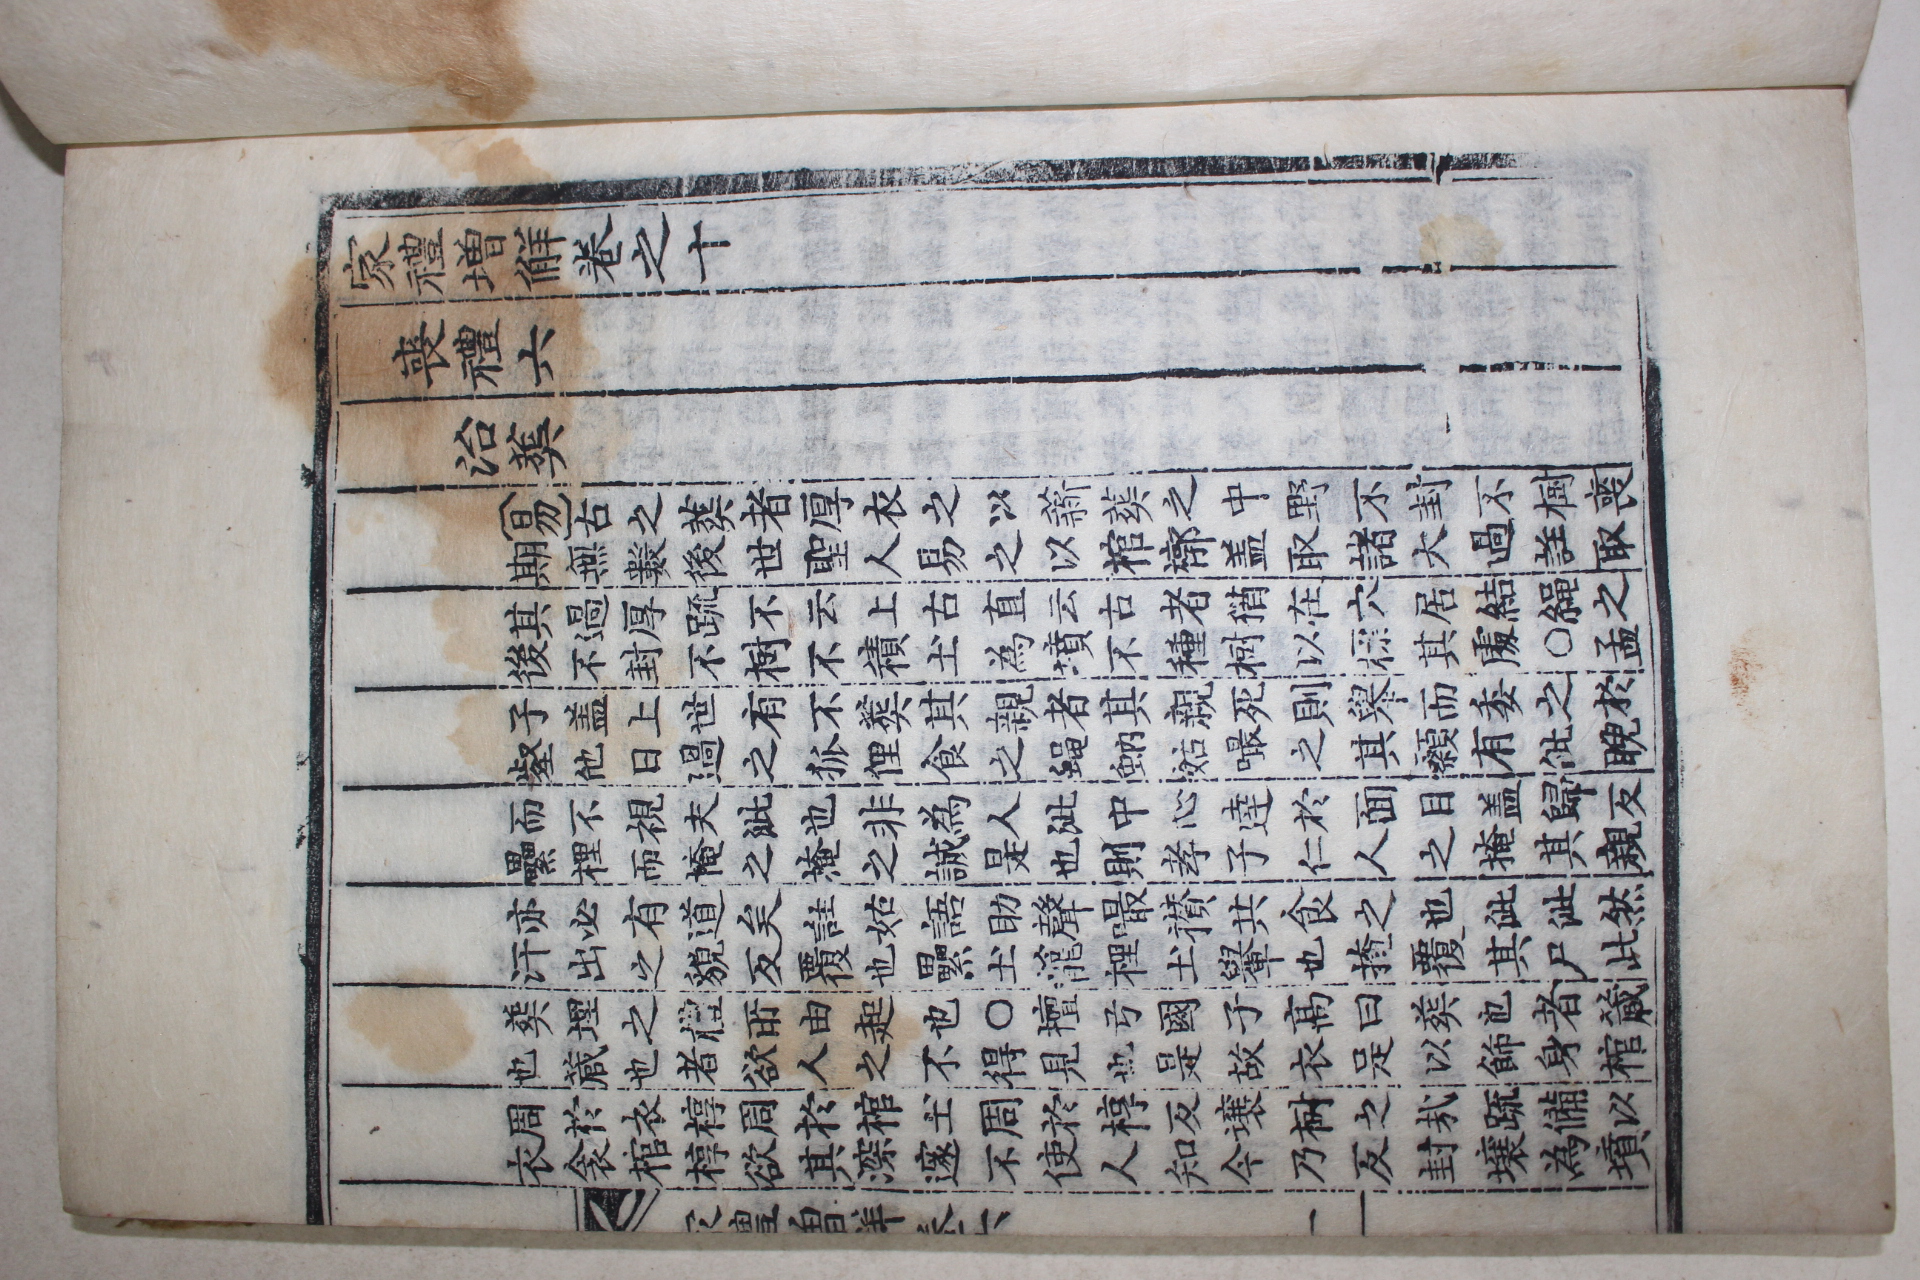 家禮增解卷之十
喪禮六
治葬
〔易〕古之葬者厚衣之以薪葬之中野不封不樹喪
期無數後世聖人易之以棺槨盖取諸大過註取
其過厚䟽不云上古直云古者猶在穴居結繩之
後不封不樹不積土為墳不種樹以標其處○孟
子盖上世有不葬其親者其親死則舉而委之於
壑他日過之狐狸食之蝇蚋姑嘬之其顙有泚睨
而不視夫泚也非為人泚中心逹於面目盖歸反
虆梩而掩之掩之誠是也則孝子仁人之掩其親
亦必有道矣註姑語助聲嘬攅共食之也泚泚然
汗出之貌反覆也虆土籠梩土轝也掩覆其尸此
葬埋之禮所由起也○檀弓國子高曰葬也者蔵
也蔵也者欲人之不得見也是故衣足以飾身棺
周於衣椁周於棺土周於椁反壤樹之㢤䟽備以
衣衾棺椁欲其深邃不使人知今乃反封壤為墳
家禮增解卷六
一